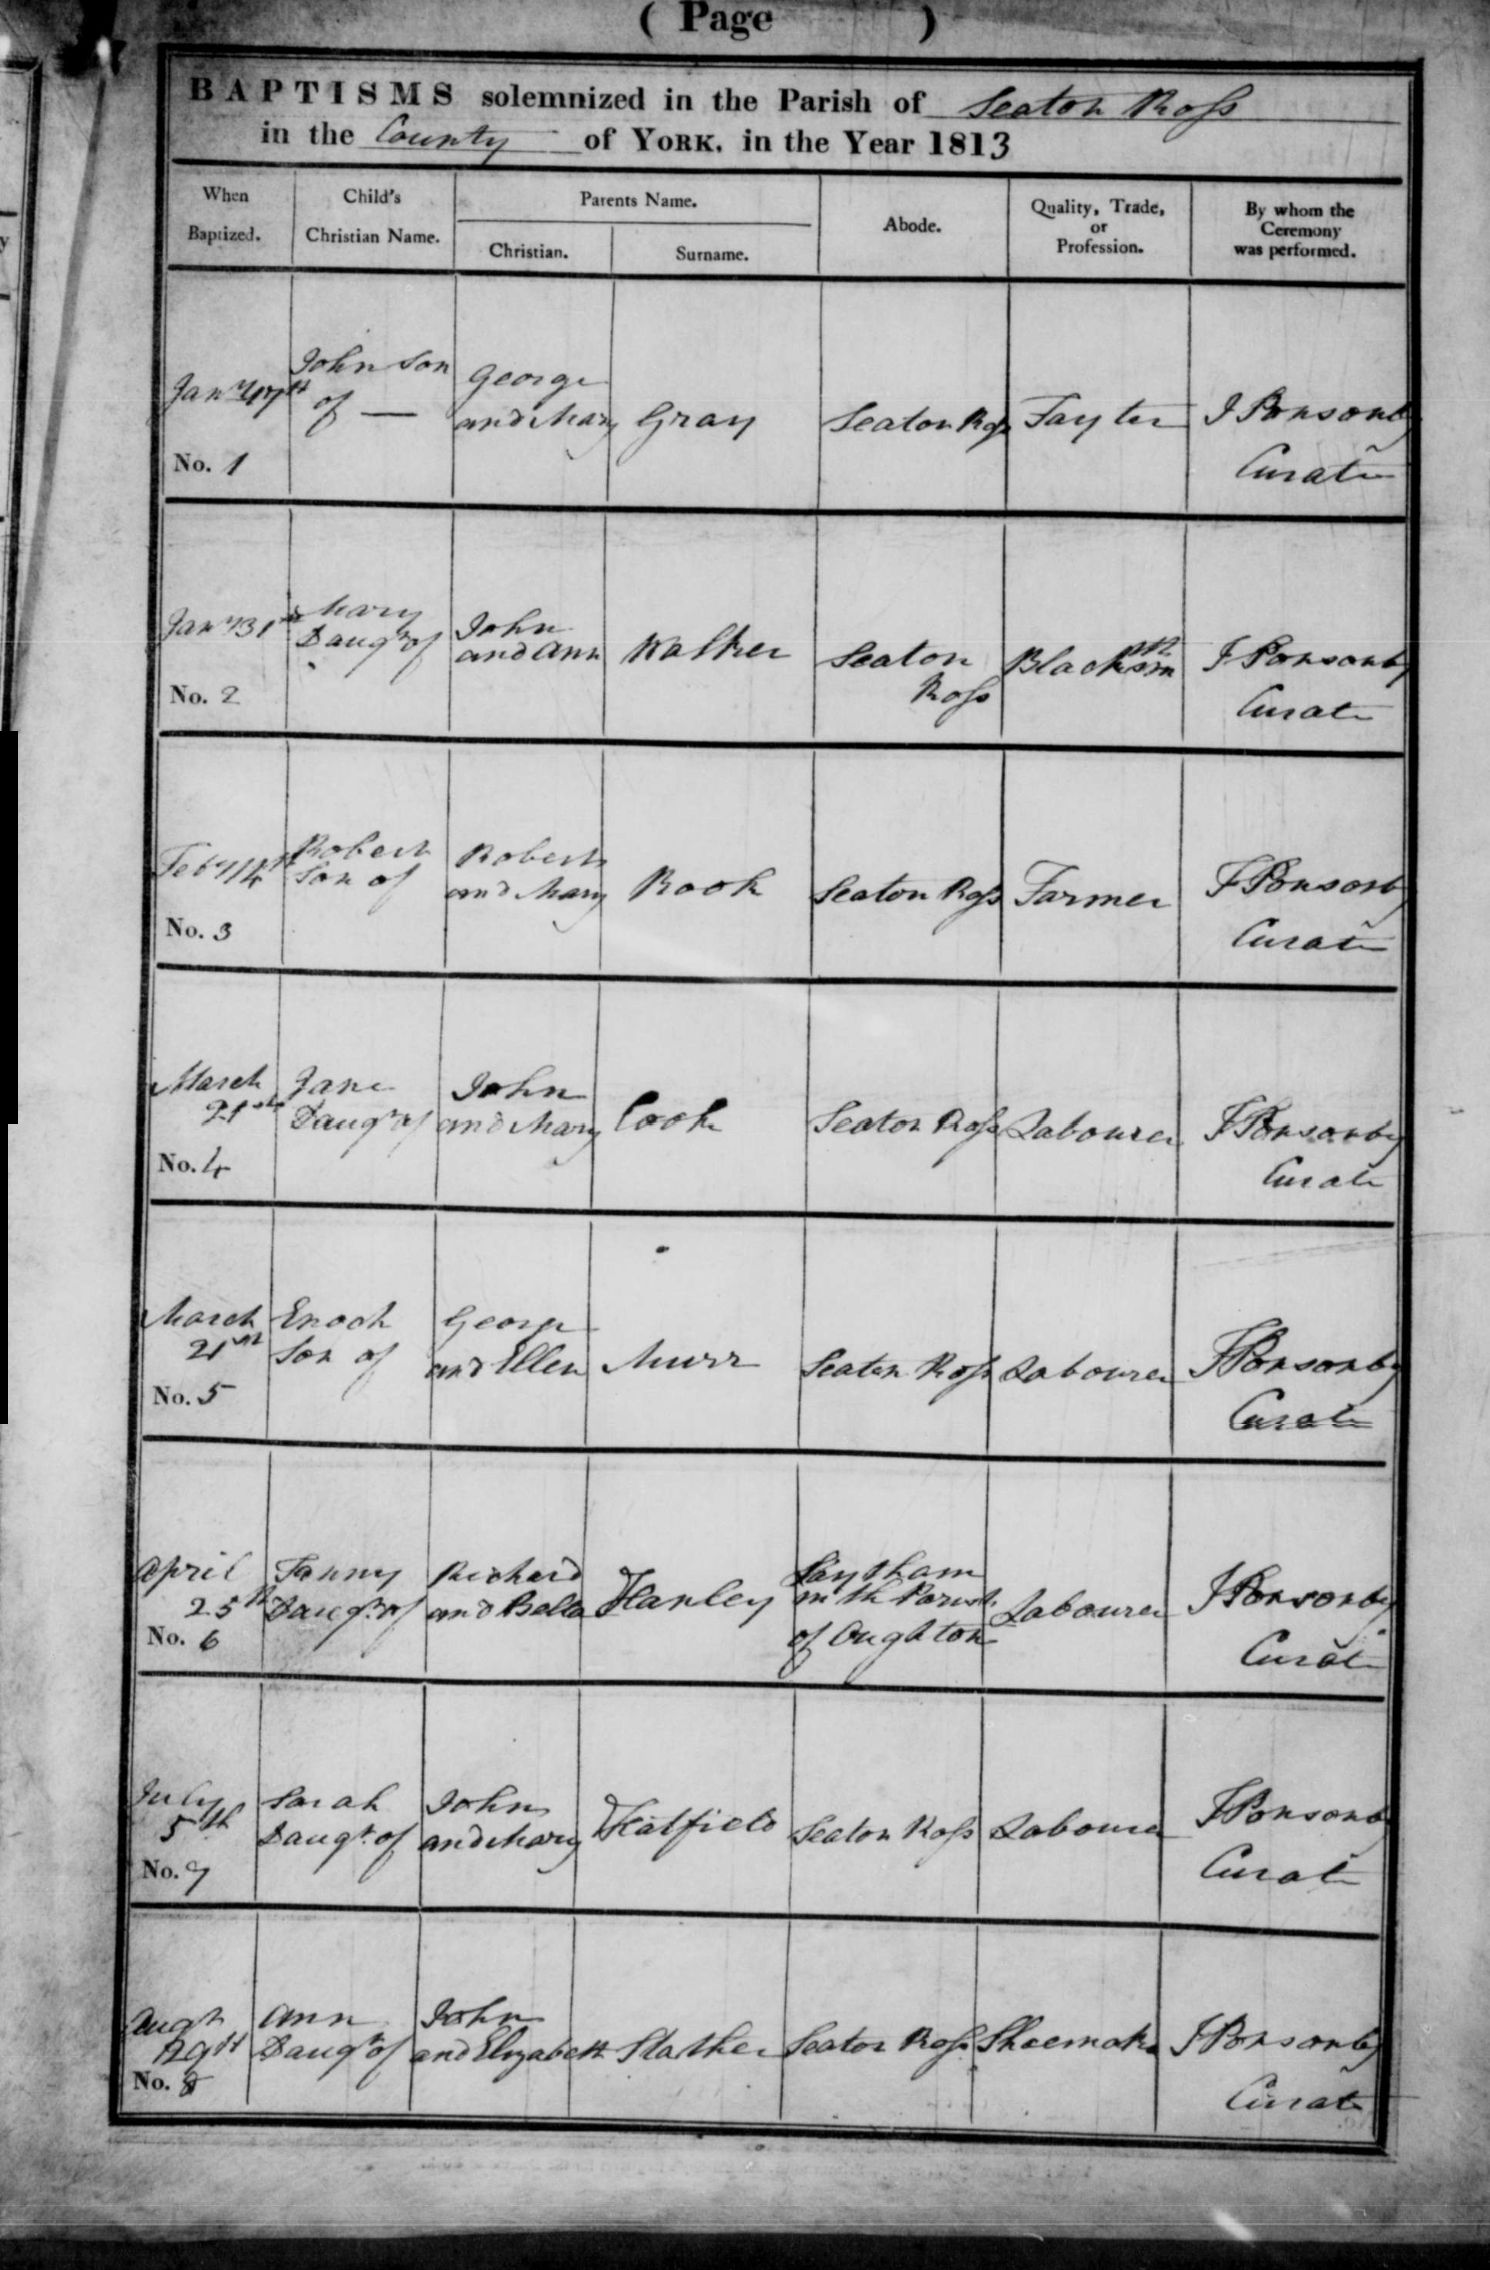 ( Page )
BAPTISMS solemnized in the Parish of Seaton Ross
in the County of YORK, in the Year 1813
When Baptized.
Child's Christian Name.
Parents Name.
Christian.
Surname.
Abode.
Quality, Trade, or Profession.
By whom the Ceremony was performed.
Jany 17th
No. 1
John son
of —
George
and Mary
Gray
Seaton Ross
Taylor
J Ponsonby
Curate
Jany 31st
No. 2
Mary
Daugr of
John
and Ann
Walker
Seaton
Ross
Blacksmth
J Ponsonby
Curate
Feby 14th
No. 3
Robert
Son of
Robert
and Mary
Rook
Seaton Ross
Farmer
J Ponsonby
Curate
March
21st
No. 4
Jane
Daugr of
John
and Mary
Cook
Seaton Ross
Labourer
J Ponsonby
Curate
March
21st
No. 5
Enoch
Son of
George
and Ellen
Murr
Seaton Ross
Labourer
J Ponsonby
Curate
April
25th
No. 6
Fanny
Daugr of
Richard
and Bella
Hanley
Laytham
in th Parish
of Aughton
Labourer
J Ponsonby
Curate
July
5th
No. 7
Sarah
Daugr of
John
and Mary
Hatfield
Seaton Ross
Labourer
J Ponsonby
Curate
Augt
29th
No. 8
Ann
Daugr of
John
and Elizabeth
Stather
Seaton Ross
Shoemaker
J Ponsonby
Curate